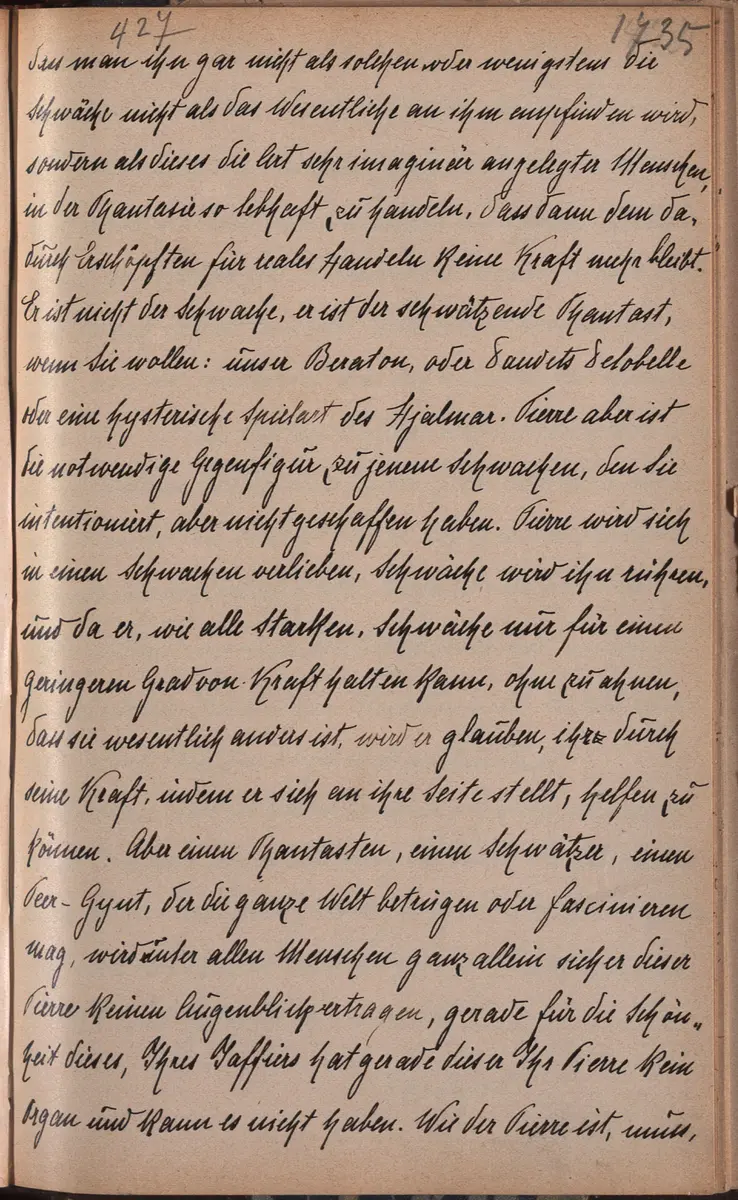 427 1735
dass man ihn gar nicht als solchen oder wenigstens die
Schwäche nicht als das Wesentliche an ihm empfinden wird,
sondern als dieses die Art sehr imaginär angelegter Menschen,
in der Phantasie so lebhaft zu handeln, dass dann dem da-
durch Erschöpften für reales Handeln keine Kraft mehr bleibt.
Er ist nicht der Schwache, er ist der schwätzende Phantast,
wenn Sie wollen: unser Beraton, oder Daudets Delobelle
oder eine hysterische Spielart des Hjalmar. Pierre aber ist
die notwendige Gegenfigur zu jenem Schwachen, den Sie
intentioniert, aber nicht geschaffen haben. Pierre wird sich
in einen Schwachen verlieben, Schwäche wird ihn rühren,
und da er, wie alle Starken, Schwäche nur für einen
geringeren Grad von Kraft halten kann, ohne zu ahnen,
dass sie wesentlich anders ist, wird er glauben, ihr durch
seine Kraft, indem er sich an ihre Seite stellt, helfen zu
können. Aber einen Phantasten, einen Schwätzer, einen
Peer-Gynt, der die ganze Welt betrügen oder fascinieren
mag, wird unter allen Menschen ganz allein sicher dieser
Pierre keinen Augenblick ertragen, gerade für die Schön-
heit dieses, Ihres Jaffiers hat gerade dieser Ihr Pierre kein
Organ und kann es nicht haben. Wie der Pierre ist, muss,